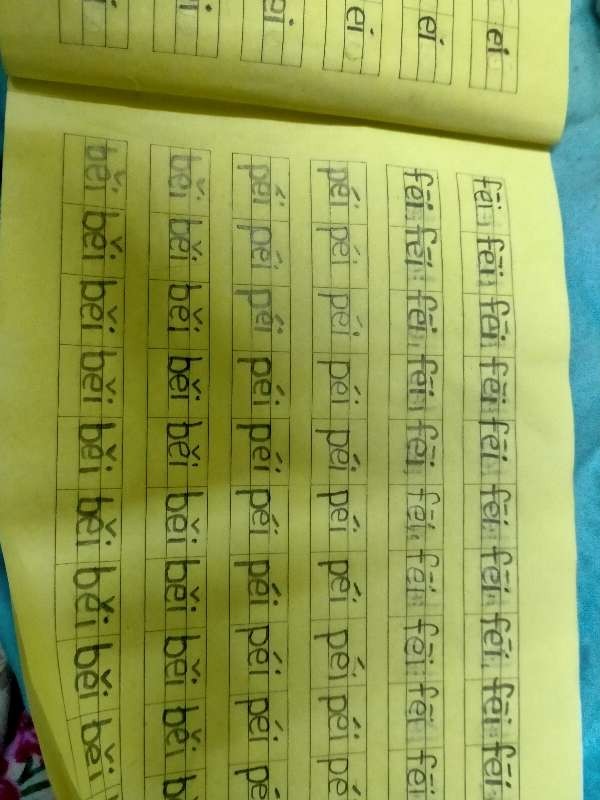 ei
ei
ei
ei
i
i
fēi fēi fēi fēi fēi fēi fēi fēi fēi fēi
fēi fēi fēi fēi fēi fēi fēi fēi fēi fēi
péi péi péi péi péi péi péi péi péi pé
péi péi péi péi péi péi péi péi péi pé
běi běi běi běi běi běi běi běi běi b
běi běi běi běi běi běi běi běi běi